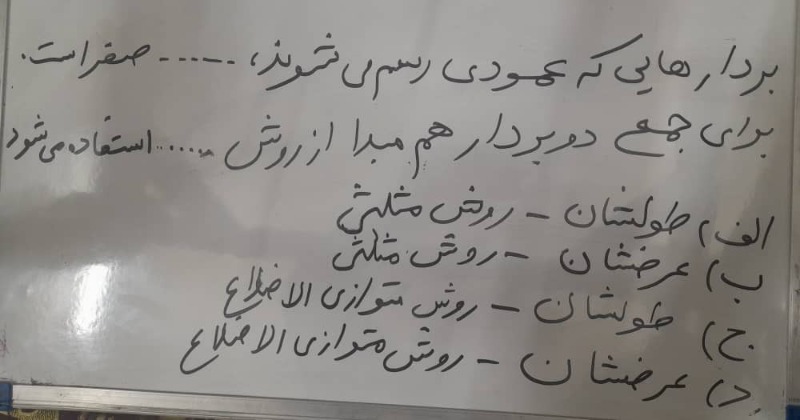 بردارهایی که عمودی رسم می شوند، ...... صفر است.
برای جمع دو بردار هم مبدا از روش ...... استفاده می شود
الف) طولشان - روش مثلثی
ب) عرضشان - روش مثلثی
ج) طولشان - روش متوازی الاضلاع
د) عرضشان - روش متوازی الاضلاع